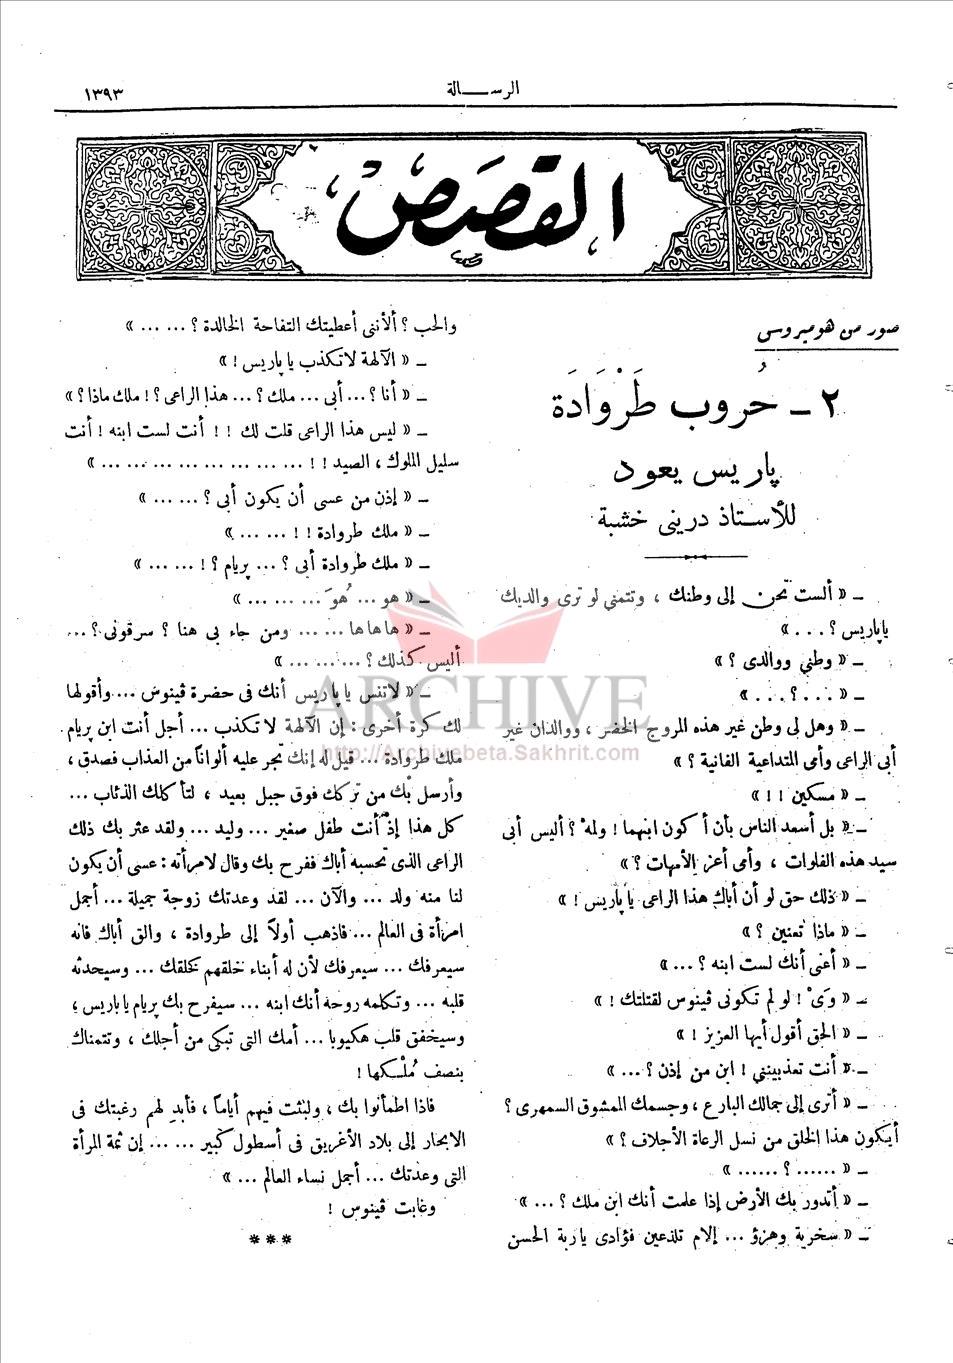 ١٣٩٣
الرسالة
القصص
صور من هوميروس
٢ - حُروب طَرْوَادَة
پاريس يعود
للأستاذ دريني خشبة
ــ « ألست تحن إلى وطنك ، وتتمنى لو ترى والديك
ياپاريس ؟ ... »
ــ « وطني ووالدى ؟ »
ــ « ... ؟ ... »
ــ « وهل لى وطن غير هذه المروج الخضر ، ووالدان غير
أبى الراعى وأمى المتداعية الفانية ؟ »
ــ « مسكين !! »
ــ « بل أسعد الناس بأن أكون ابنهما ! ولمه ؟ أليس أبى
سيد هذه الفلوات ، وأمى أعز الأمهات ؟ »
ــ « ذلك حق لو أن أباك هذا الراعى ياپاريس ! »
ــ « ماذا تعنين ؟ »
ــ « أعنى أنك لست ابنه ؟ ... »
ــ « وَىْ ! لو لم تكونى ڤينوس لقتلتك ! »
ــ « الحق أقول أيها العزيز ! »
ــ « أنت تعذبينني ! ابن من إذن ؟ ... »
ــ « أترى إلى جمالك البارع ، وجسمك الممشوق السمهرى ؟
أيكون هذا الخلق من نسل الرعاة الأجلاف ؟ »
ــ « ...... ؟ ...... »
ــ « أتدور بك الأرض إذا علمت أنك ابن ملك ؟ ... »
ــ « سخرية وهزؤ ... إلام تلذعين فؤادى ياربة الحسن
والحب ؟ ألأننى أعطيتك التفاحة الخالدة ؟ ... ... »
ــ « الآلهة لاتكذب ياپاريس ! »
ــ « أنا ؟ ... أبى ... ملك ؟ ... هذا الراعى ؟ ! ملك ماذا ؟ »
ــ « ليس هذا الراعى قلت لك !! أنت لست ابنه ! أنت
سليل الملوك ، الصيد !! ... ... ... ... ... ... ... »
ــ « إذن من عسى أن يكون أبى ؟ ... ... »
ــ « ملك طروادة !! ... ... »
ــ « ملك طروادة أبى ؟ ... پريام ؟ ! ... ... »
ــ « هو ... هُوَ ... ... ... »
ــ « ها ها ها ... ... ومن جاء بى هنا ؟ سرقونى ؟ ...
أليس كذلك ؟ ... ... ... »
ــ « لاتنس ياپاريس أنك فى حضرة ڤينوس ... وأقولها
لك كرة أخرى : إن الآلهة لا تكذب ... أجل أنت ابن پريام
ملك طروادة ... قيل له إنك تجر عليه ألواناً من العذاب فصدق ،
وأرسل بك من تركك فوق جبل بعيد ، لتأكلك الذئاب ...
كل هذا إذ أنت طفل صغير ... وليد ... ولقد عثر بك ذلك
الراعى الذى تحسبه أباك ففرح بك وقال لامرأته : عسى أن يكون
لنا منه ولد ... والآن ... لقد وعدتك زوجة جميلة ... أجمل
امرأة فى العالم ... فاذهب أولاً إلى طروادة ، والق أباك فانه
سيعرفك ... سيعرفك لأن له أبناء خلقهم كخلقك ... وسيحدثه
قلبه ... وتكلمه روحه أنك ابنه ... سيفرح بك پريام ياپاريس ؛
وسيخفق قلب هكيوبا ... أمك التى تبكى من أجلك ، وتتمناك
بنصف مُلْكها !
فاذا اطمأنوا بك ، ولبثت فيهم أياماً ، فأبدِ لهم رغبتك فى
الابحار إلى بلاد الأغريق فى أسطول كبير ... ... إن ثمة المرأة
التى وعدتك ... أجمل نساء العالم ... »
وغابت ڤينوس !
* * *
ARCHIVE
http://Archivebeta.Sakhrit.com